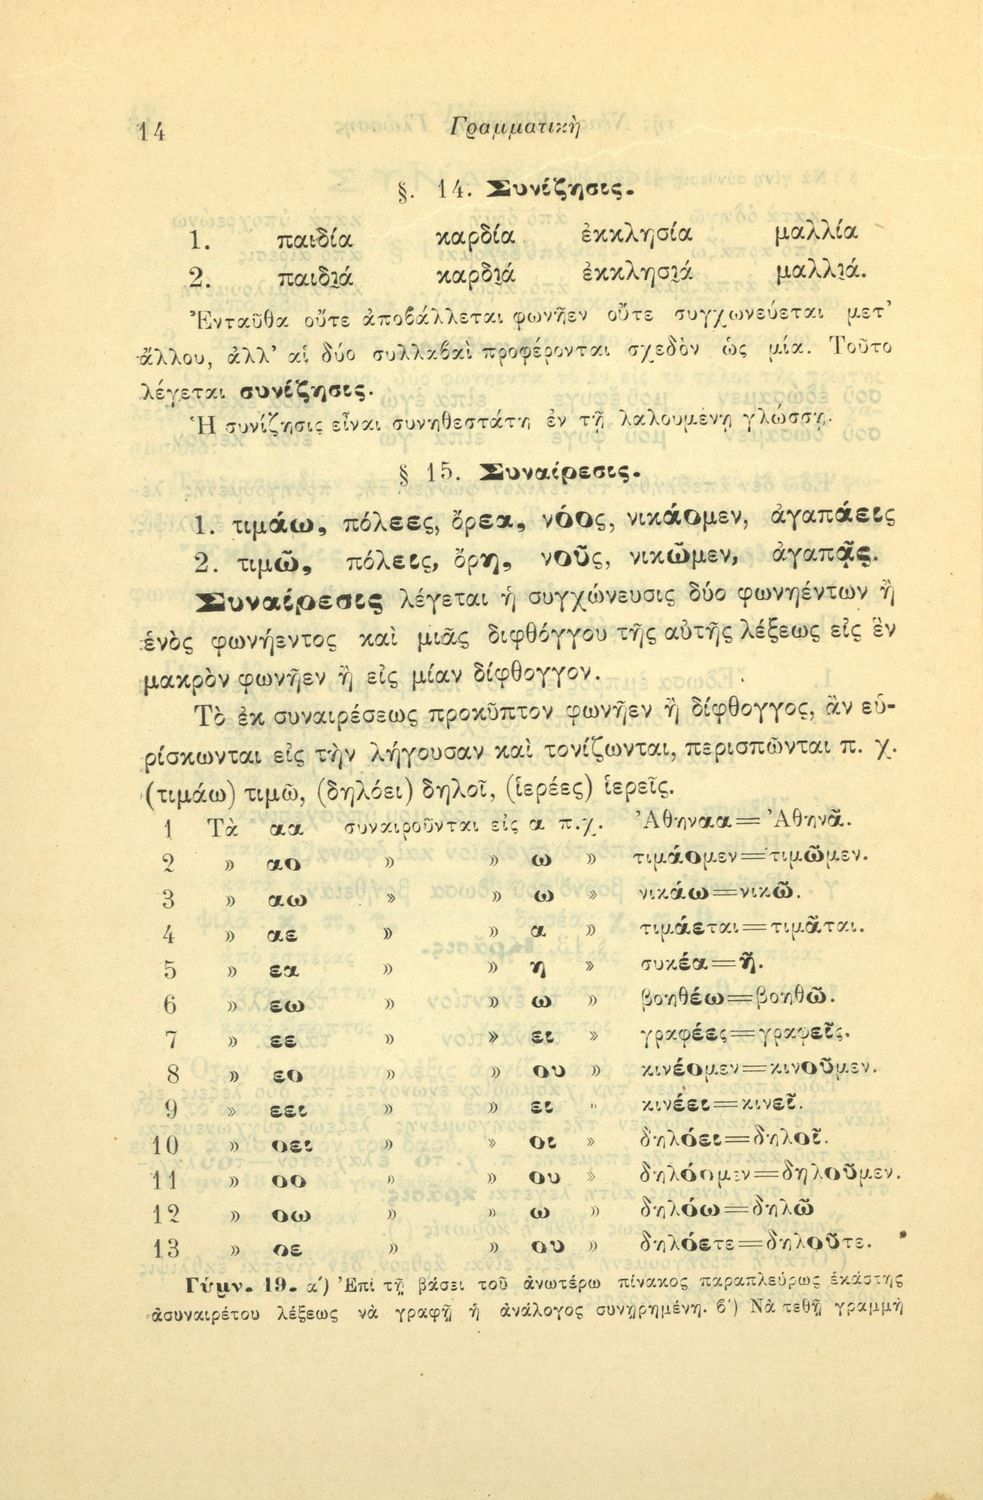 14 Γραμματικὴ
§. 14. Συνίζησις.
1. παιδία καρδία ἐκκλησία μαλλία
2. παιδι̯ά καρδι̯ά ἐκκλησι̯ά μαλλι̯ά.
Ἐνταῦθα οὔτε ἀποβάλλεται φωνῆεν οὔτε συγχωνεύεται μετ᾽
ἄλλου, ἀλλ᾽ αἱ δύο συλλαβαὶ προφέρονται σχεδὸν ὡς μία. Τοῦτο
λέγεται συνίζησις.
Ἡ συνίζησις εἶναι συνηθεστάτη ἐν τῇ λαλουμένῃ γλώσσῃ.
§ 15. Συναίρεσις.
1. τιμάω, πόλεες, ὄρεα, νόος, νικάομεν, ἀγαπάεις
2. τιμῶ, πόλεις, ὄρη, νοῦς, νικῶμεν, ἀγαπᾷς.
Συναίρεσις λέγεται ἡ συγχώνευσις δύο φωνηέντων ἢ
ἑνὸς φωνήεντος καὶ μιᾶς διφθόγγου τῆς αὐτῆς λέξεως εἰς ἓν
μακρὸν φωνῆεν ἢ εἰς μίαν δίφθογγον.
Τὸ ἐκ συναιρέσεως προκῦπτον φωνῆεν ἢ δίφθογγος, ἂν εὑ-
ρίσκωνται εἰς τὴν λήγουσαν καὶ τονίζωνται, περισπῶνται π. χ.
(τιμάω) τιμῶ, (δηλόει) δηλοῖ, (ἱερέες) ἱερεῖς.
1 Τὰ αα συναιροῦνται εἰς α π.χ. Ἀθηναα=Ἀθηνᾶ.
2 » αο » » ω » τιμάομεν=τιμῶμεν.
3 » αω » » ω » νικάω=νικῶ.
4 » αε » » α » τιμάεται=τιμᾶται.
5 » εα » » η » συκέα=ῆ.
6 » εω » » ω » βοηθέω=βοηθῶ.
7 » εε » » ει » γραφέες=γραφεῖς.
8 » εο » » ου » κινέομεν=κινοῦμεν.
9 » εει » » ει » κινέει=κινεῖ.
10 » οει » » οι » δηλόει=δηλοῖ.
11 » οο » » ου » δηλόομεν=δηλοῦμεν.
12 » οω » » ω » δηλόω=δηλῶ
13 » οε » » ου » δηλόετε=δηλοῦτε.
Γύμν. 19. α΄) Ἐπὶ τῇ βάσει τοῦ ἀνωτέρω πίνακος παραπλεύρως ἑκάστης
ἀσυναιρέτου λέξεως νὰ γραφῇ ἡ ἀνάλογος συνῃρημένη. β΄) Νὰ τεθῇ γραμμὴ